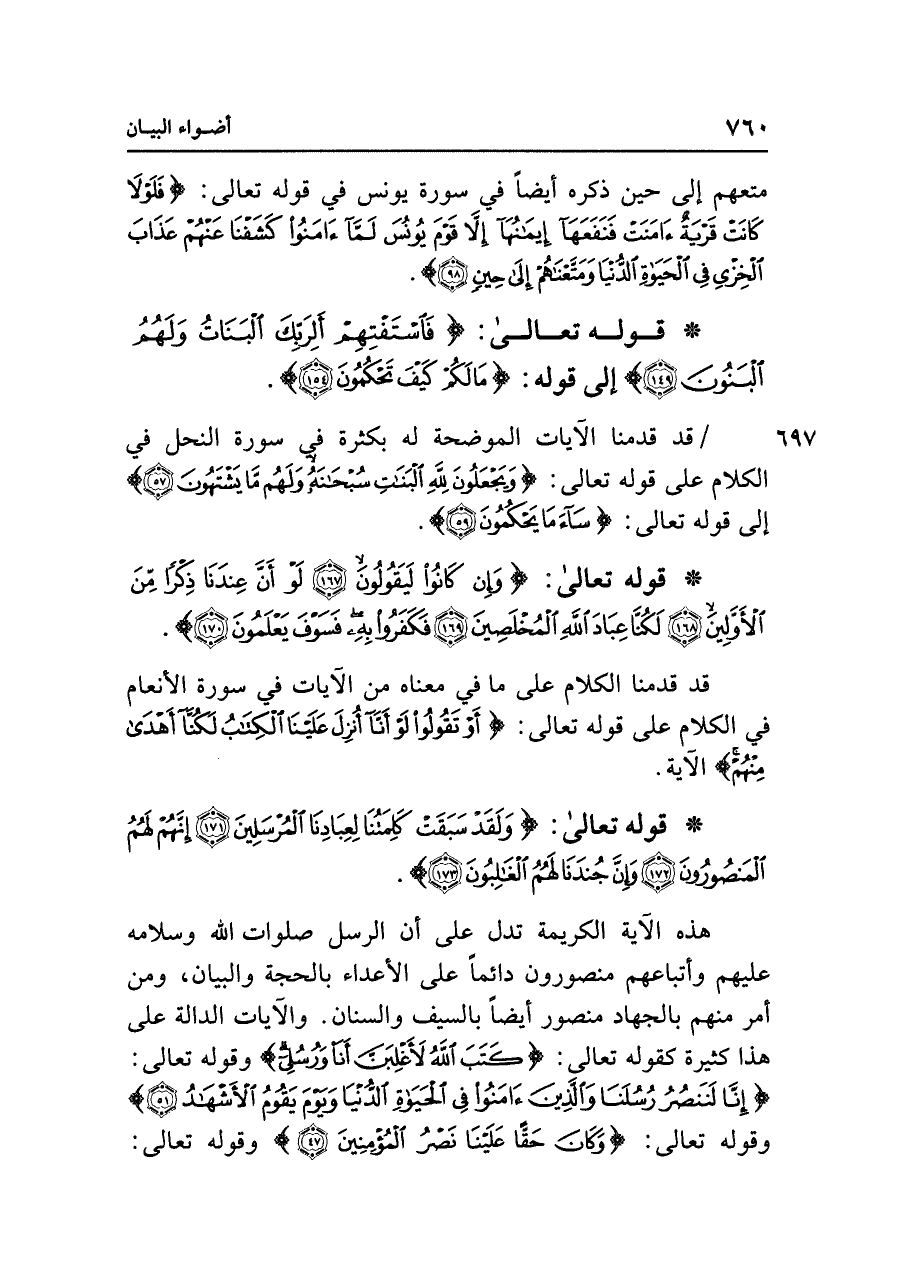 ٧٦٠ أضواء البيان
متعهم إلى حين ذكره أيضاً في سورة يونس في قوله تعالى: ﴿ فَلَوْلَا
كَانَتْ قَرْيَةٌ ءَامَنَتْ فَنَفَعَهَآ إِيمَٰنُهَآ إِلَّا قَوْمَ يُونُسَ لَمَّآ ءَامَنُواْ كَشَفْنَا عَنْهُمْ عَذَابَ
ٱلْخِزْيِ فِي ٱلْحَيَوٰةِ ٱلدُّنْيَا وَمَتَّعْنَٰهُمْ إِلَىٰ حِينٍ ٩٨﴾ .
* قوله تعالىٰ: ﴿ فَٱسْتَفْتِهِمْ أَلِرَبِّكَ ٱلْبَنَاتُ وَلَهُمُ
ٱلْبَنُونَ ١٤٩﴾ إلى قوله: ﴿ مَا لَكُمْ كَيْفَ تَحْكُمُونَ ١٥٤﴾ .
٦٩٧ / قد قدمنا الآيات الموضحة له بكثرة في سورة النحل في
الكلام على قوله تعالى: ﴿ وَيَجْعَلُونَ لِلَّهِ ٱلْبَنَٰتِ سُبْحَٰنَهُۥ وَلَهُم مَّا يَشْتَهُونَ ٥٧﴾
إلى قوله تعالى: ﴿ سَآءَ مَا يَحْكُمُونَ ٥٩﴾ .
* قوله تعالىٰ: ﴿ وَإِن كَانُواْ لَيَقُولُونَۙ ١٦٧ لَوْ أَنَّ عِندَنَا ذِكْرًا مِّنَ
ٱلْأَوَّلِينَۙ ١٦٨ لَكُنَّا عِبَادَ ٱللَّهِ ٱلْمُخْلَصِينَ ١٦٩ فَكَفَرُواْ بِهِۦۖ فَسَوْفَ يَعْلَمُونَ ١٧٠﴾ .
قد قدمنا الكلام على ما في معناه من الآيات في سورة الأنعام
في الكلام على قوله تعالى: ﴿ أَوْ تَقُولُواْ لَوْ أَنَّآ أُنزِلَ عَلَيْنَا ٱلْكِتَٰبُ لَكُنَّآ أَهْدَىٰ
مِنْهُمْۚ﴾ الآية .
* قوله تعالىٰ: ﴿ وَلَقَدْ سَبَقَتْ كَلِمَتُنَا لِعِبَادِنَا ٱلْمُرْسَلِينَ ١٧١ إِنَّهُمْ لَهُمُ
ٱلْمَنصُورُونَ ١٧٢ وَإِنَّ جُندَنَا لَهُمُ ٱلْغَٰلِبُونَ ١٧٣﴾ .
هذه الآية الكريمة تدل على أن الرسل صلوات الله وسلامه
عليهم وأتباعهم منصورون دائماً على الأعداء بالحجة والبيان، ومن
أمر منهم بالجهاد منصور أيضاً بالسيف والسنان. والآيات الدالة على
هذا كثيرة كقوله تعالى: ﴿ كَتَبَ ٱللَّهُ لَأَغْلِبَنَّ أَنَا۠ وَرُسُلِيٓۚ﴾ وقوله تعالى:
﴿ إِنَّا لَنَنصُرُ رُسُلَنَا وَٱلَّذِينَ ءَامَنُواْ فِي ٱلْحَيَوٰةِ ٱلدُّنْيَا وَيَوْمَ يَقُومُ ٱلْأَشْهَٰدُ ٥١﴾
وقوله تعالى: ﴿ وَكَانَ حَقًّا عَلَيْنَا نَصْرُ ٱلْمُؤْمِنِينَ ٤٧ ﴾ وقوله تعالى: